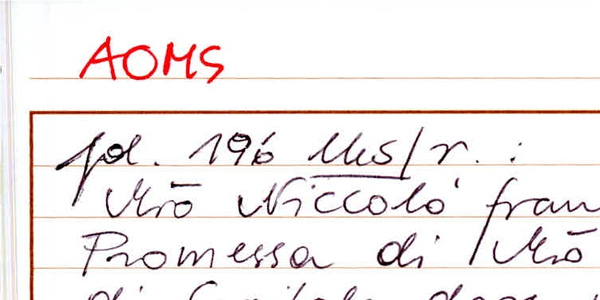 AOMS
fol. 196 MS/r. :
Mrõ Niccolò fran
Promessa di Mrõ
di